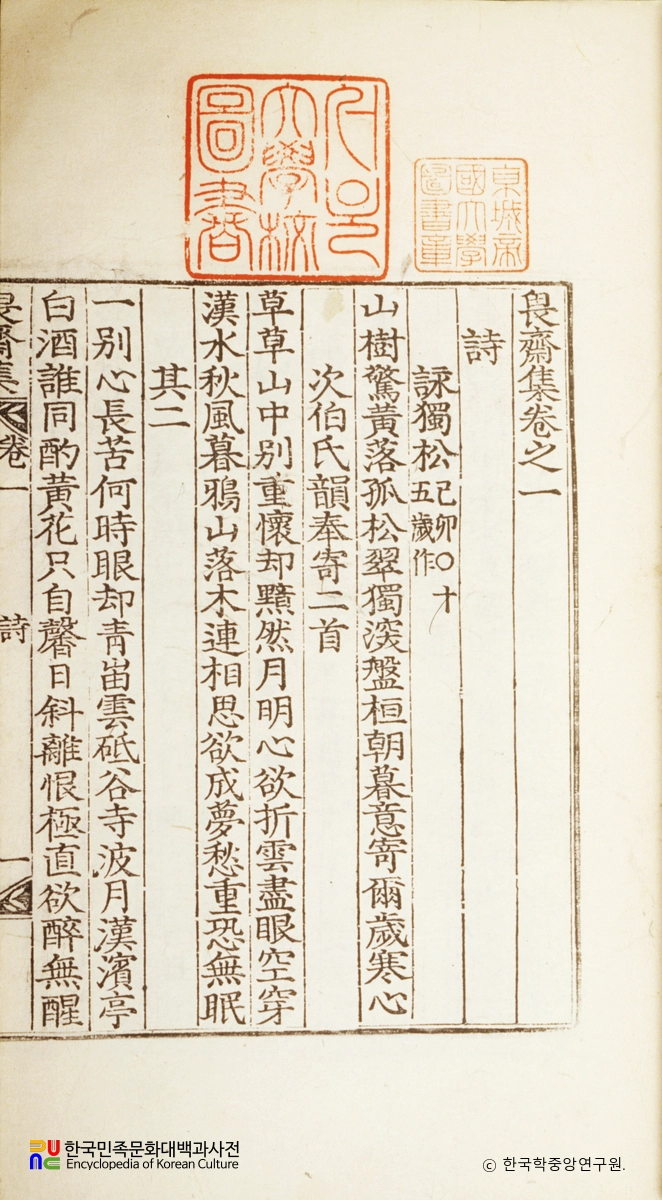 서울大學校圖書
京城帝國大學圖書章
畏齋集卷之一
詩
詠獨松己卯○十五歲作
山樹驚黃落孤松翠獨深盤桓朝暮意寄爾歲寒心
次伯氏韻奉寄二首
草草山中別重懷却黯然月明心欲折雲盡眼空穿
漢水秋風暮鴉山落木連相思欲成夢愁重恐無眠
其二
一別心長苦何時眼却靑峀雲砥谷寺波月漢濱亭
白酒誰同酌黃花只自馨日斜離恨極直欲醉無醒
畏齋集 卷一 詩 一
한국민족문화대백과사전
Encyclopedia of Korean Culture
ⓒ 한국학중앙연구원.